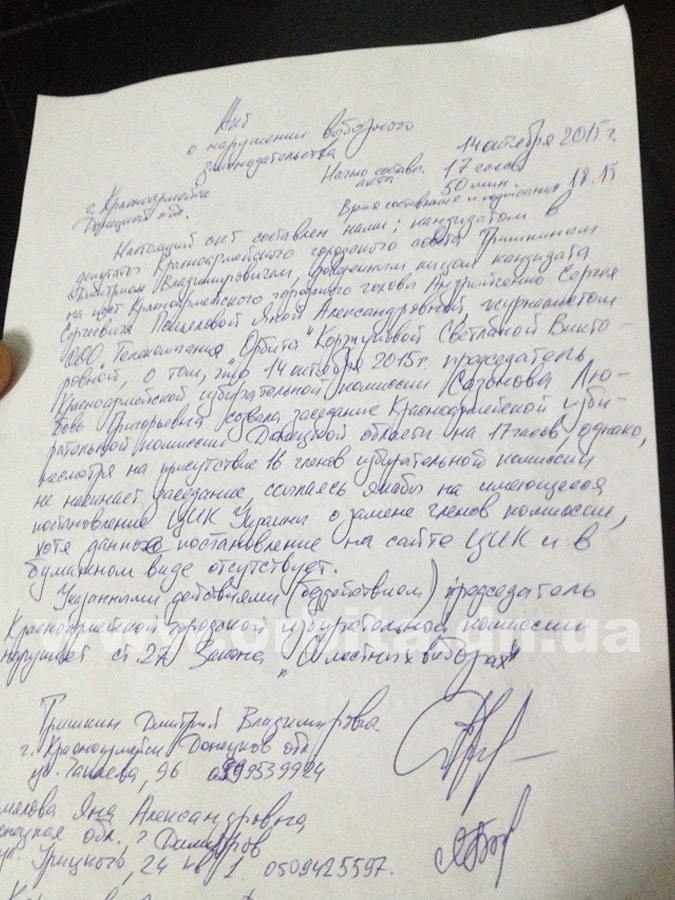 Акт
о нарушении выборного
законодательства
14 октября 2015 г.
Начало составл. 17 часов
акта 50 мин.
г. Красноармейск
Донецкой обл.
Время составления и подписания 18.15
Настоящий акт составлен нами: кандидатом в
депутаты Красноармейского городского совета Тришкиным
Дмитрием Владимировичем, доверенным лицом кандидата
на пост Красноармейского городского головы Андрийченко Сергея
Сергеевича Яной Александровной, журналистом
ООО "Телекомпания Орбита" Светланой Викто-
ровной, о том, что 14 октября 2015г. председатель
Красноармейской избирательной комиссии Сазонова Лю-
бовь Григорьевна созвала заседание Красноармейской изби-
рательной комиссии Донецкой области на 17 часов, однако,
несмотря на присутствие 16 членов избирательной комиссии
не начинает заседание, ссылаясь якобы на имеющееся
постановление ЦИК Украины о замене членов комиссии,
хотя данное постановление на сайте ЦИК и в
бумажном виде отсутствует.
Указанными действиями (бездействием) председатель
Красноармейской городской избирательной комиссии
нарушает ст. 27 Закона "О местных выборах"
www.orbita.dn.ua
Тришкин Дмитрий Владимирович
г. Красноармейск Донецкой обл.
ул. Чапаева, 96
Яна Александровна
обл. г Димитров
Урицкого, 24 кв 1 0509425597.